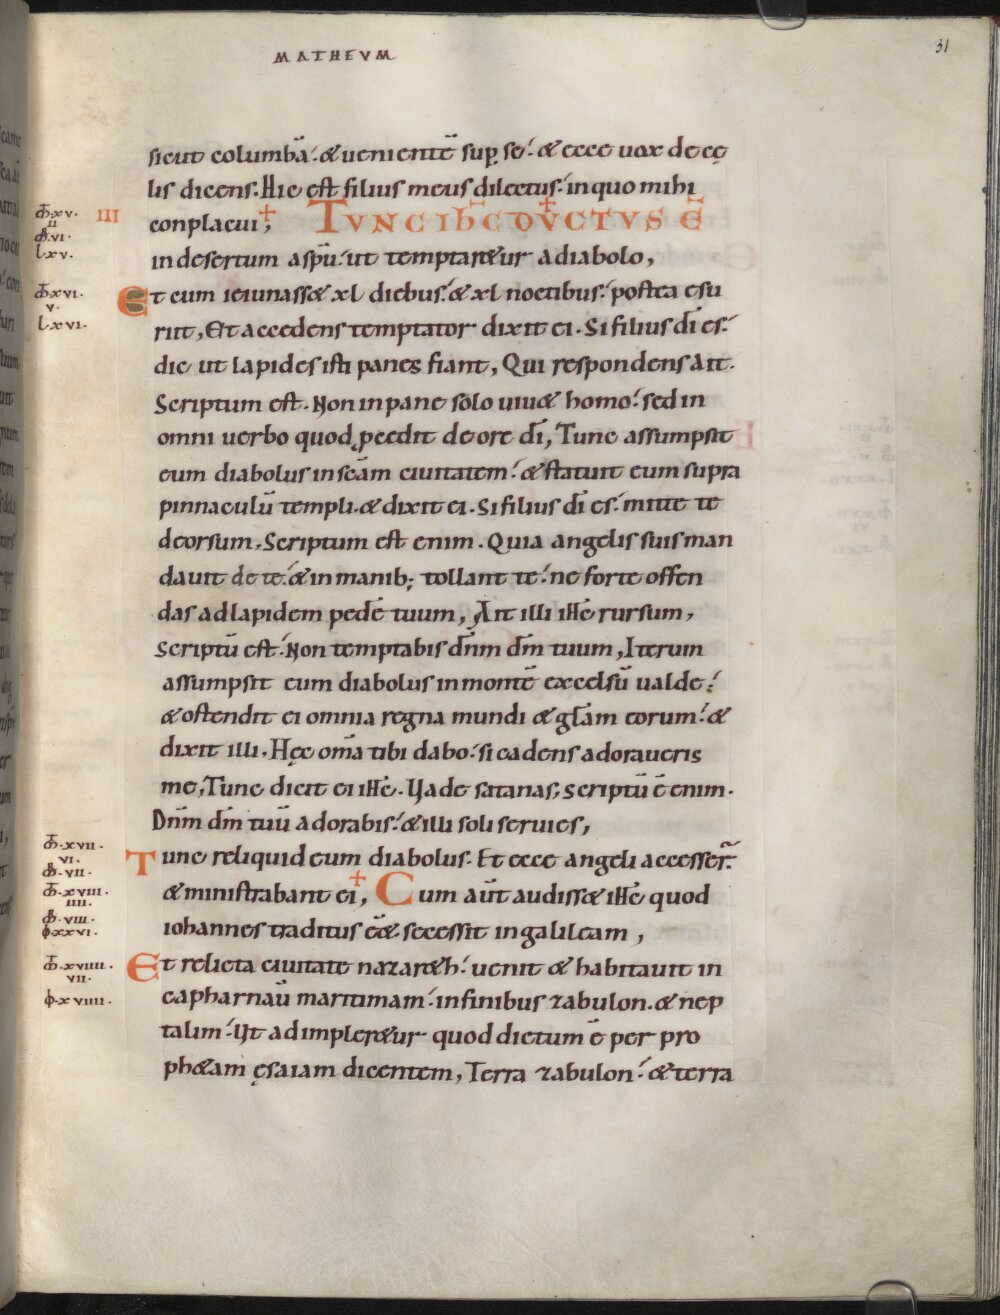 MATHEVM
31
sicut columbā. & uenientē sup̲ se. & ecce uox de cę
lis dicens. Hic est filius meus dilectus. in quo mihi
III conplacui; TVNC IHC DVCTVS Ē
in desertum a sp̄u. ut temptar&ur a diabolo,
Et cum ieiunass& xl diebus. & xl noctibus. postea esu
riit, Et accedens temptator dixit ei. Si filius dī es.
dic ut lapides isti panes fiant, Qui respondens ait.
Scriptum est. Non in pane solo uiu& homo. sed in
omni uerbo quod ꝓcedit de ore dī, Tunc assumpsit
eum diabolus in scām ciuitatem. & statuit eum supra
pinnaculū templi. & dixit ei. Si filius dī es. mitte te
deorsum. Scriptum est enim. Quia angelis suis man
dauit de te. & in manib; tollant te. ne forte offen
das ad lapidem pedē tuum, Ait illi ihē rursum,
Scriptū est. Non temptabis dn̄m dm̄ tuum, Iterum
assumpsit eum diabolus in montē excelsū ualde.
& ostendit ei omnia regna mundi & glām eorum. &
dixit illi. Hęc om̄a tibi dabo. si cadens adoraueris
me, Tunc dicit ei ihē. Vade satanas, scriptū ē enim.
Dn̄m dm̄ tuū adorabis. & illi soli seruies,
Tunc reliquid eum diabolus. Et ecce angeli accesser̄.
& ministrabant ei, Cum aūt audiss& ihē quod
iohannes traditus eē& secessit in galileam,
Et relicta ciuitate nazar&h. uenit & habitauit in
capharnaū maritimam. in finibus zabulon. & nep
talim. Vt adimpler&ur quod dictum ē per pro
ph&am ęsaiam dicentem, Terra zabulon. & terra
.xv.
II
.vi.
l.xv.
.xvi.
v.
l.xvi.
.xvii.
vi.
.vii.
.xviii.
iiii.
.viii.
.xxvi.
.xviiii.
vii.
.xviiii.